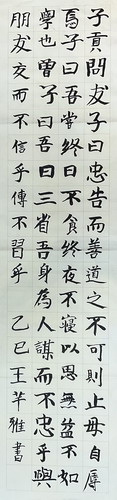 子貢問友子曰忠告而善道之不可則止毋自辱
焉子曰吾嘗終日不食終夜不寢以思無益不如
學也曾子曰吾日三省吾身為人謀而不忠乎與
朋友交而不信乎傳不習乎 乙巳王芊雅書